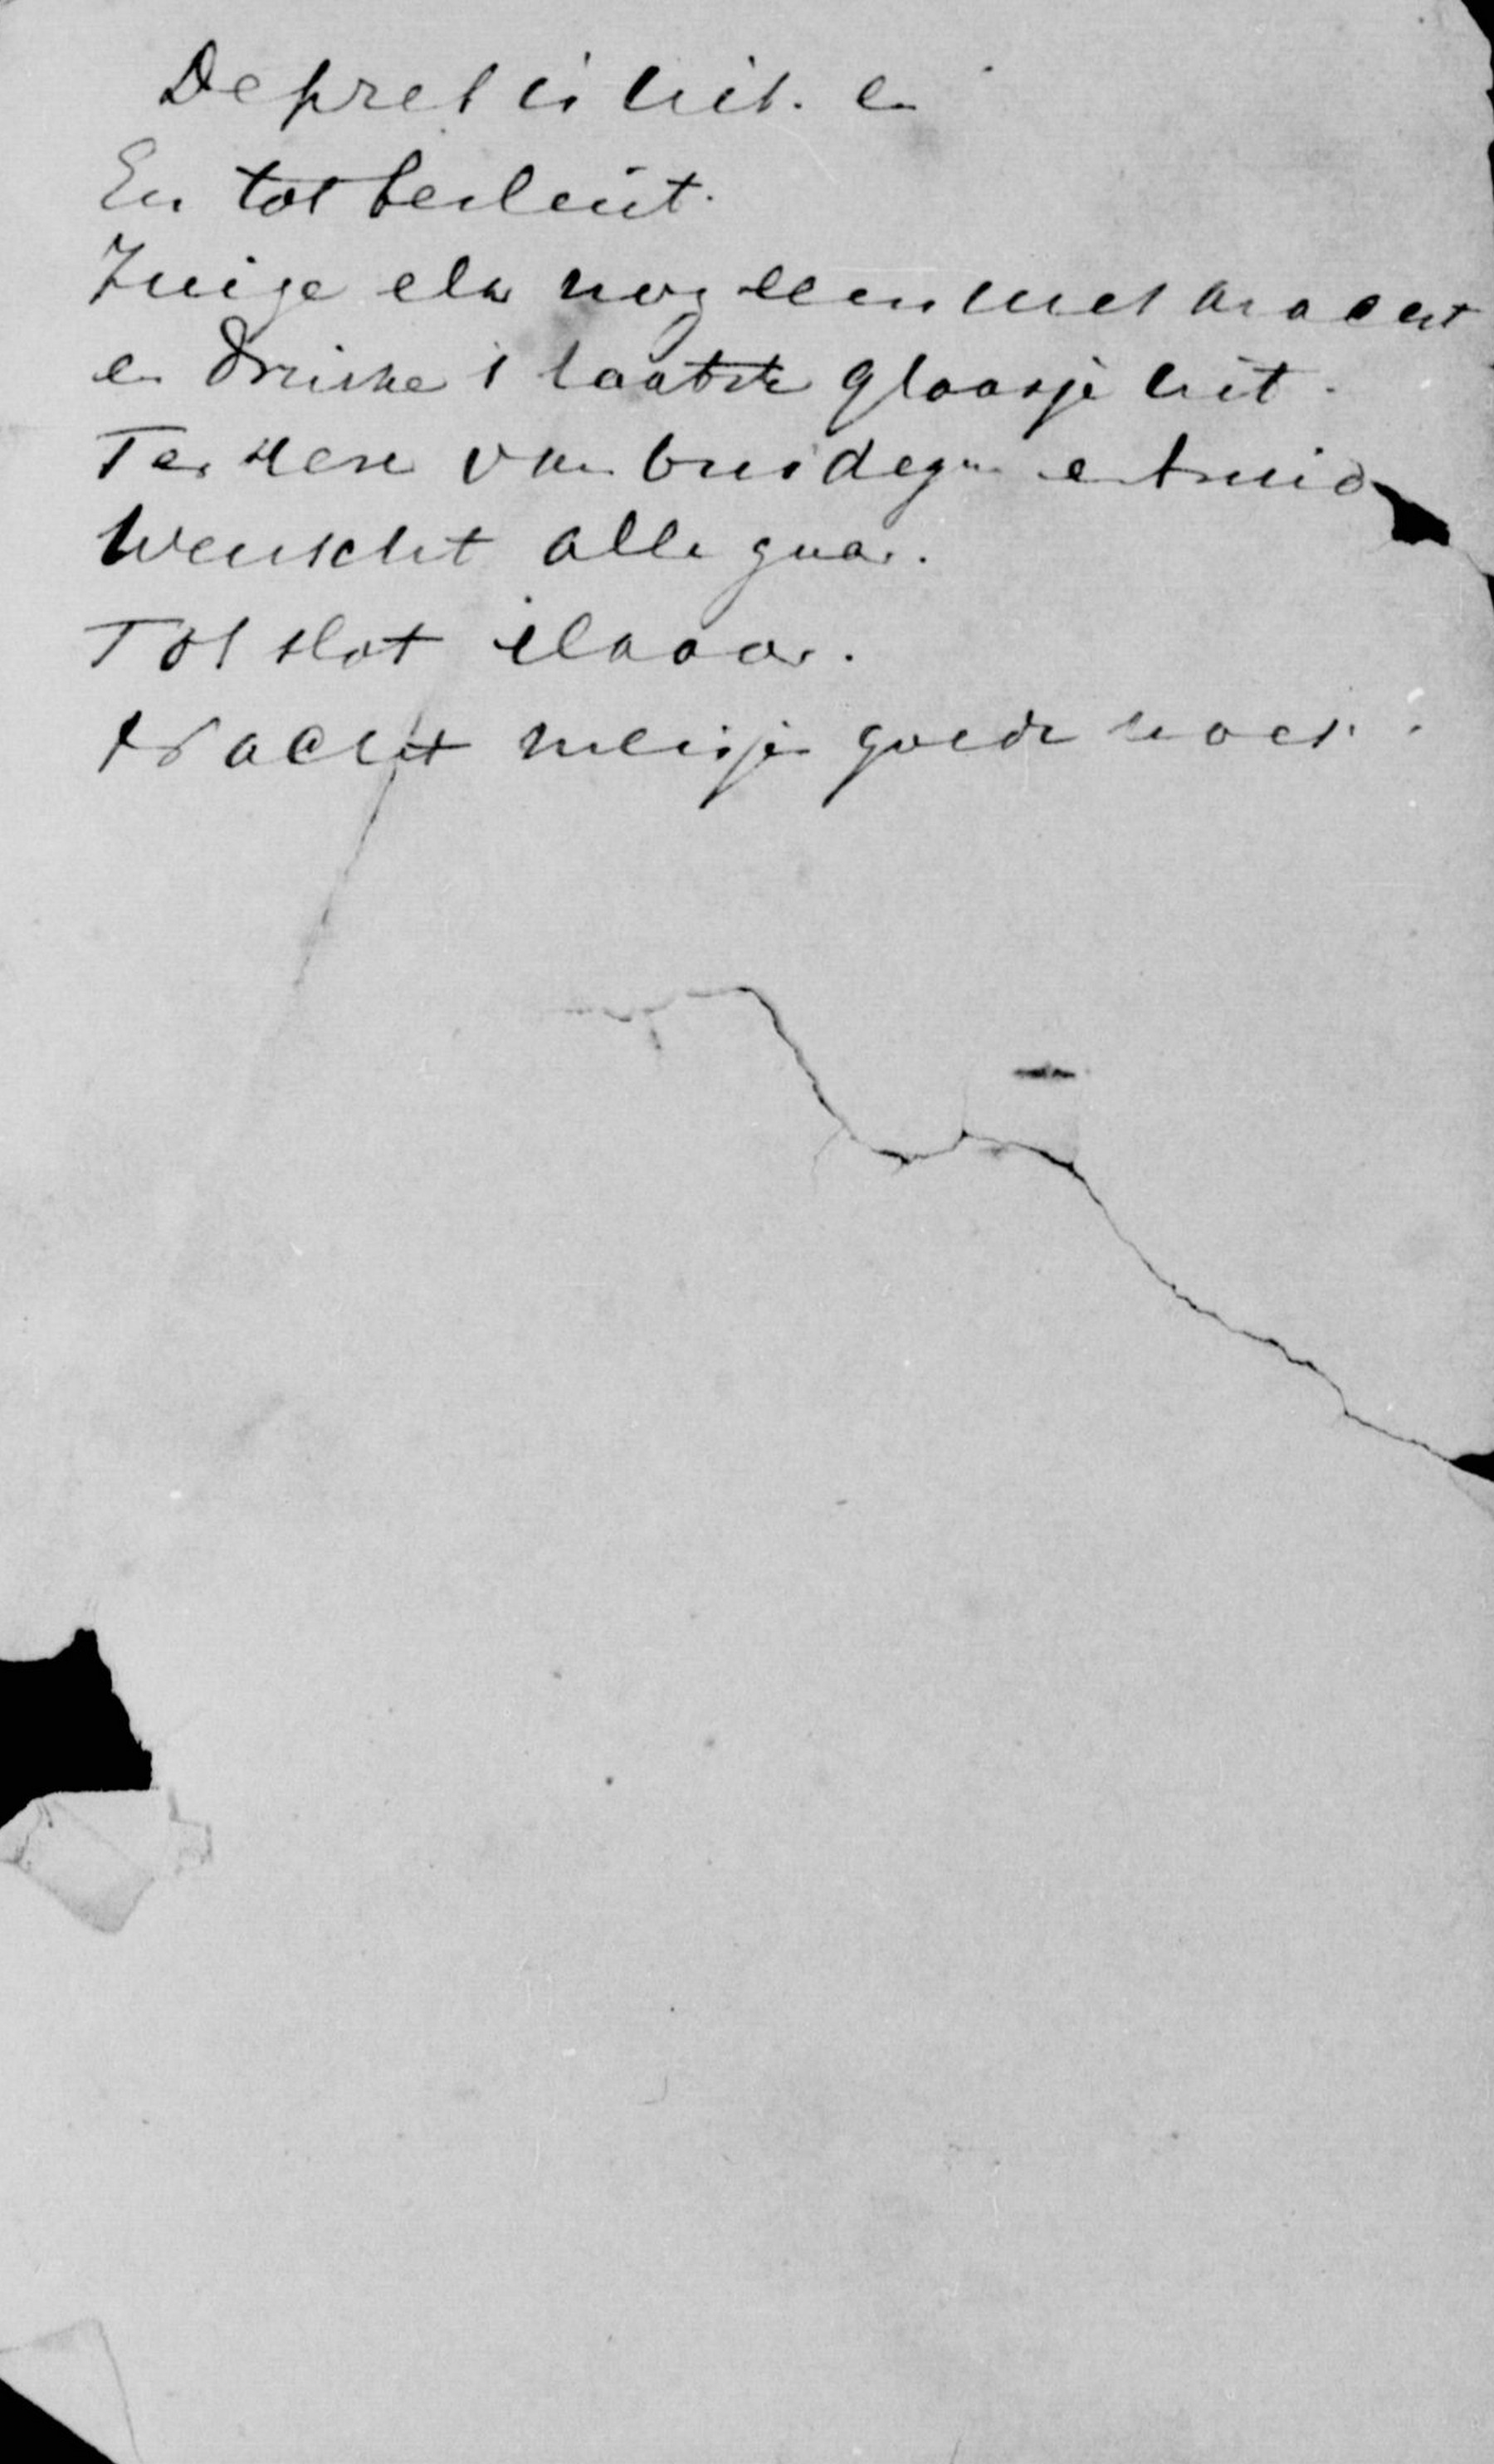 De pret is uit. en
En tot besluit.
Zuige elk nog eens met kracht
en drinke 't laatste glaasje uit.
Ter eere van bruidegom en bruid
Wenscht alle gaar.
Tot slot elkaar.
Nacht meisje goede nacht.